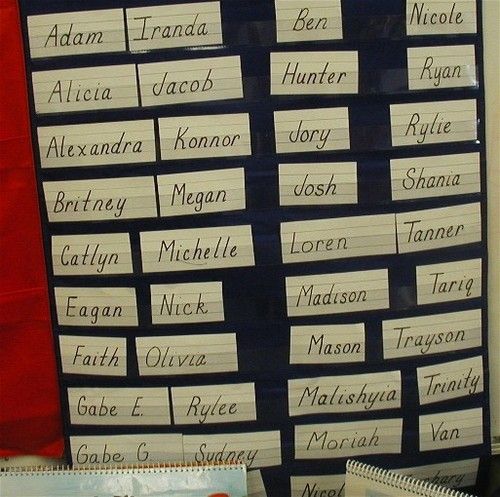 Adam Iranda Ben Nicole
Alicia Jacob Hunter Ryan
Alexandra Konnor Jory Rylie
Britney Megan Josh Shania
Catlyn Michelle Loren Tanner
Eagan Nick Madison Tariq
Faith Olivia Mason Trayson
Gabe E. Rylee Malishyia Trinity
Gabe G Sydney Moriah Van